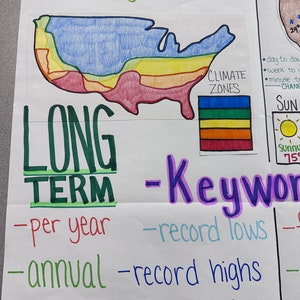 CLIMATE
ZONES
LONG
TERM
-Keywor
-per year
-record lows
-annual
-record highs
• day to da
• week to
• minute t
CHAN
SUN
Sunn
75°